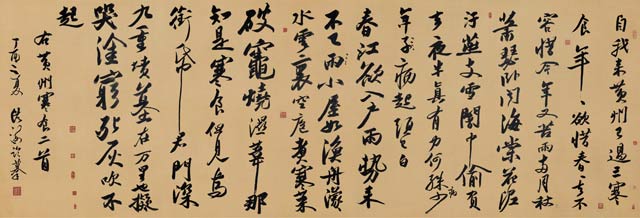 自我来黄州已過三寒
食年〻欲惜春〻去不
容惜今年又苦雨兩月秋
蕭瑟卧聞海棠花泥
汙燕支雪闇中偷負
去夜半真有力何殊少
年子病起須已白
春江欲入户雨勢来
不已雨小屋如漁舟濛〻
水雲裏空庖煮寒菜
破竈燒濕葦那
知是寒食但見烏
銜帋君門深
九重墳墓在万里也擬
哭塗窮死灰吹不
起
右黄州寒食二首
丁酉之夏